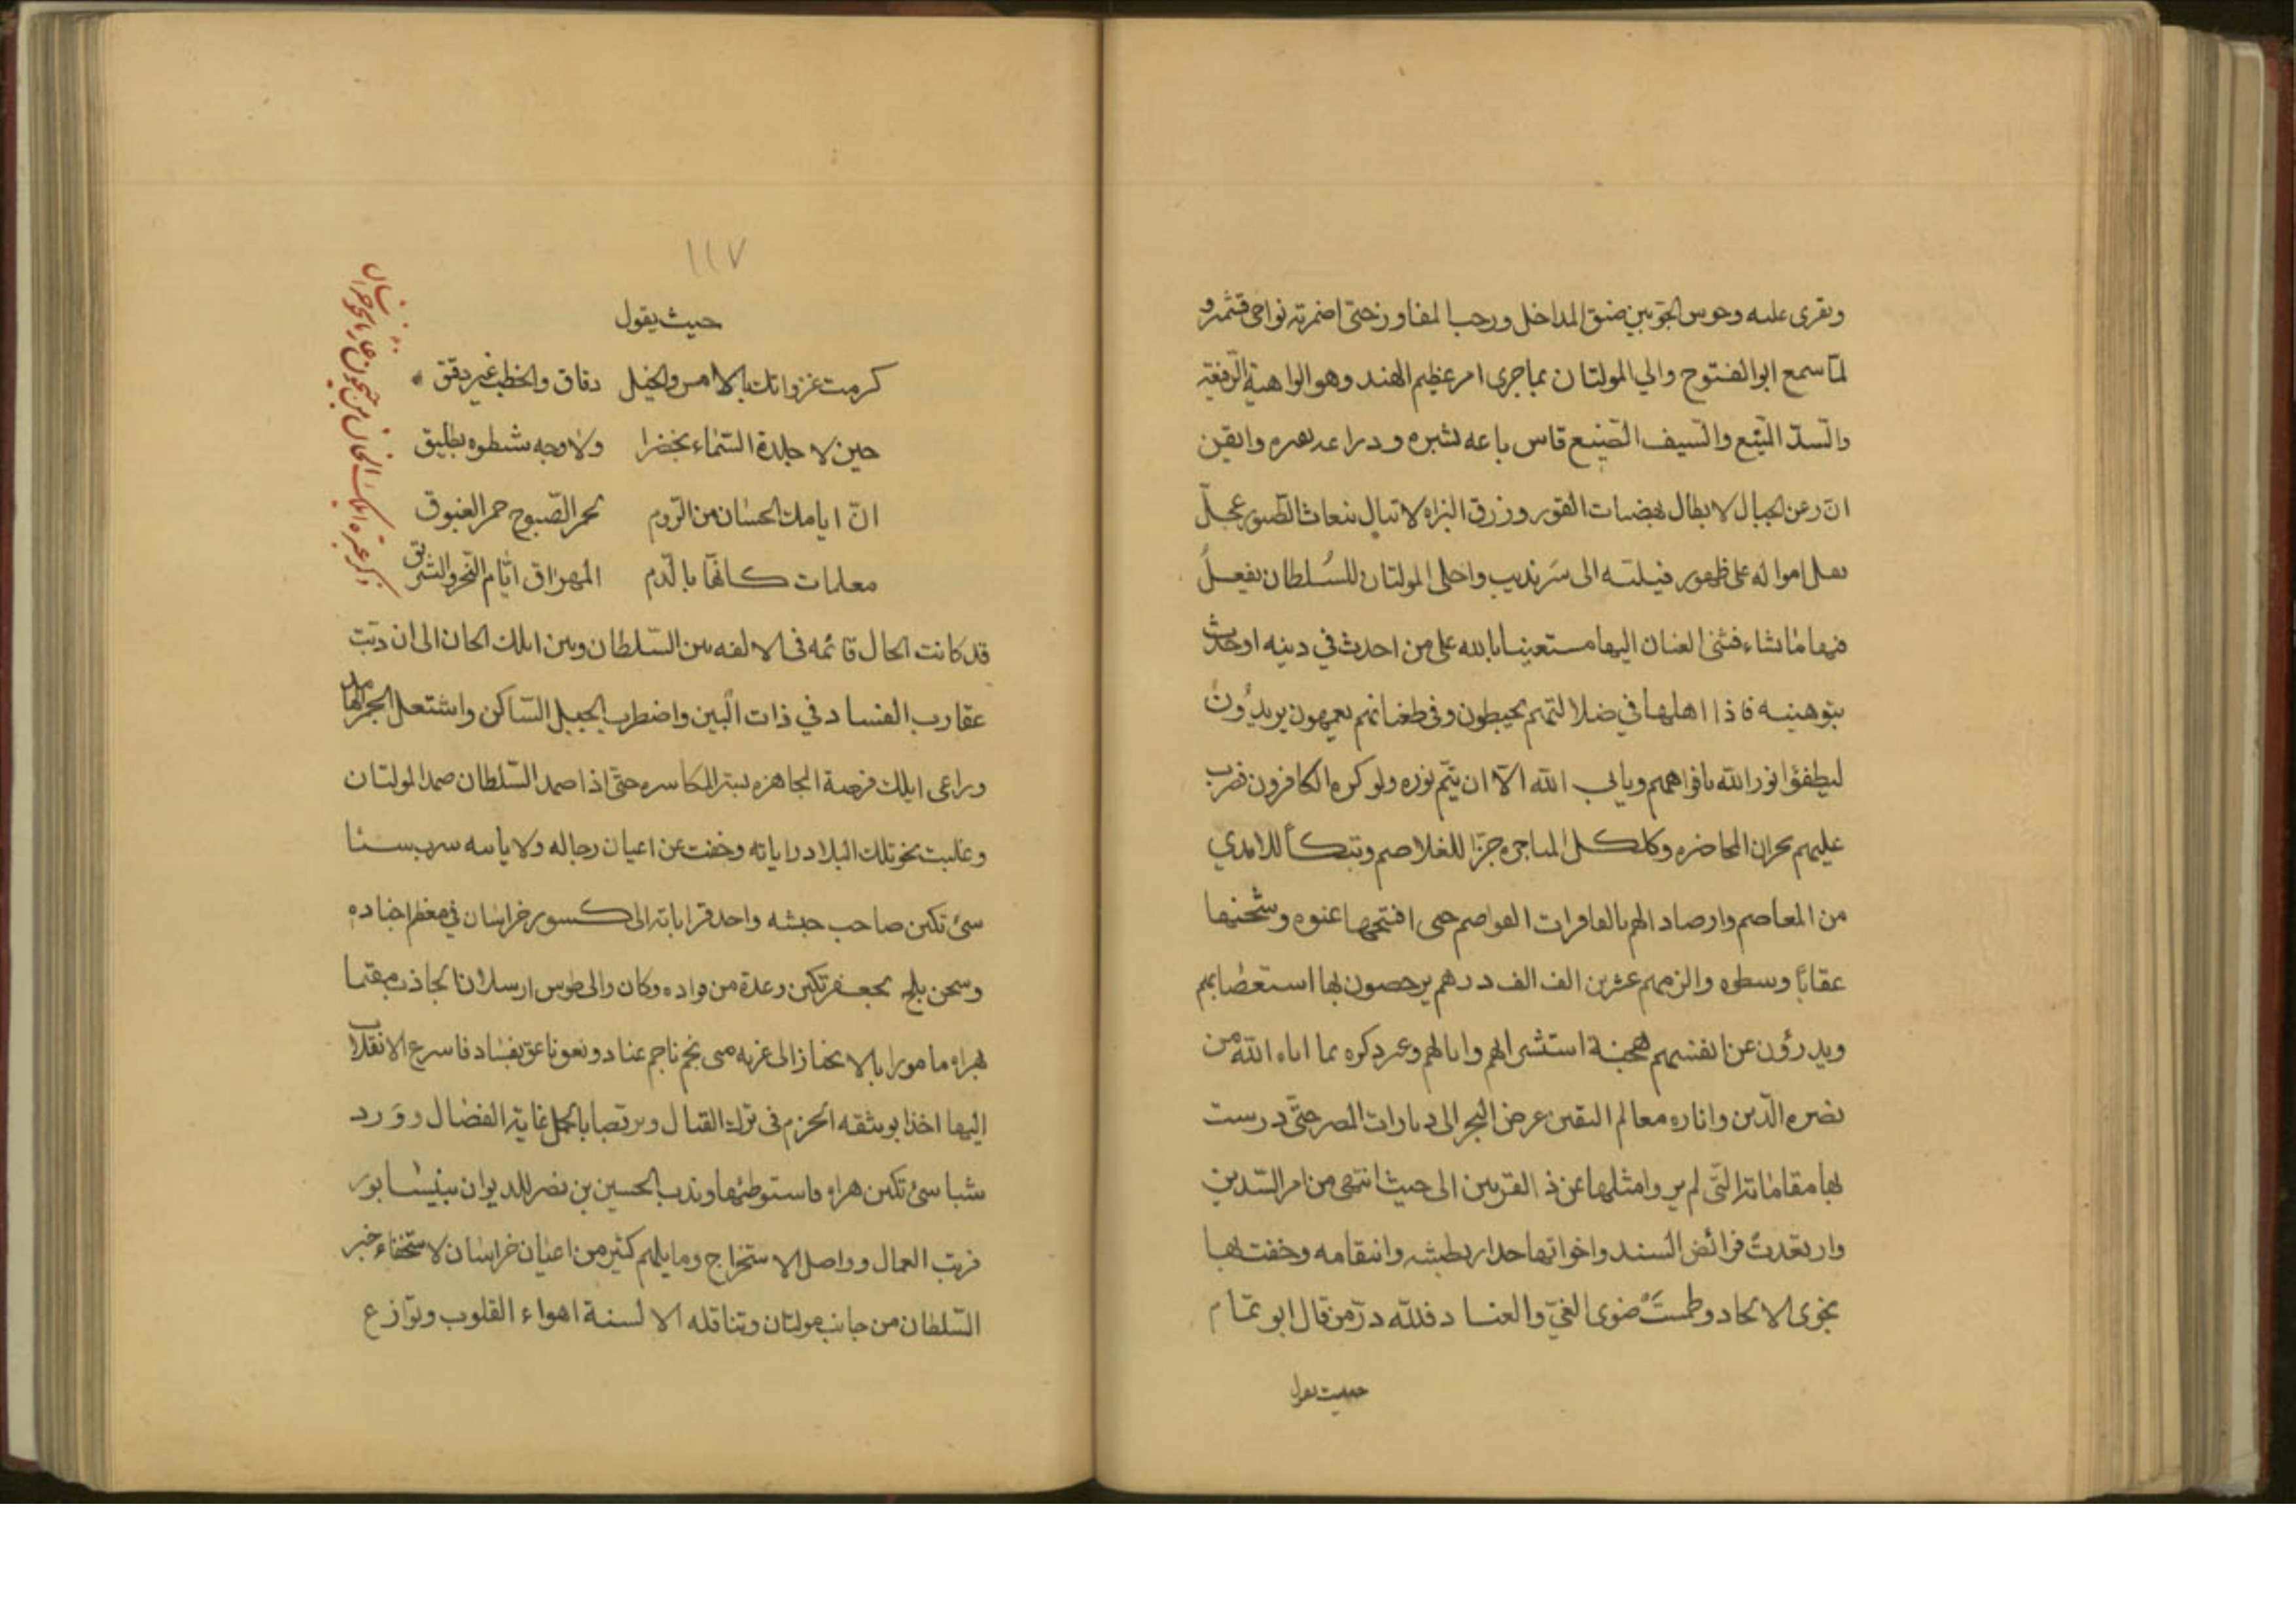 ويقرى عليه وحوس الجو بين ضيق المداخل ورحب المفاوز حتى اضمرته نواحى قشمير و
لمّا سمع ابو الفتوح والي المولتان بما جرى امر عظيم الهند وهو الواهية الرفيعة
والسدّ المنيع والسيف الصنيع قاس باعه بشبره ودراعه بفتره وايقن
انّ رعن الجبال لا يطال بهضبات القور وزرق البزاه لا تبالي ببغاث الطيور عجّل
بنقل امواله على ظهور فيلته الى سرنديب واخلى المولتان للسلطان يفعل
فيها ما يشاء فثنى العنان اليها مستعينا بالله على من احدث في دينه او حدث
بتوهينه فاذا اهلها في ضلالتهم يخبطون وفى طغيانهم يعمهون يريدُون
ليطفؤا نور الله بافواههم ويابي الله الّا ان يتمّ نوره ولو كره الكافرون فضرب
عليهم بحران المحاضره وكلكل المناجره جزّا للغلاصم وتبكاً للايدي
من المعاصم وارصادا لهم بالفاقرات القواصم حتى افتتحها عنوه وشحنها
عقابًا وسطوه والزمهم عشرين الف الف درهم يرحصون بها استعصابهم
ويدرؤن عن انفسهم هجنة استشرالهم وابالهم وعبر ذكره بما اتاه الله من
نصره الدّين واناره معالم اليقين عرض البحر الى ديارات المصر حتّى درست
بها مقاماته الّتى لم يروا مثلها عن ذى القرنين الى حيث انتهى من امر السّدين
وارتعدتْ فرائض السند واخواتها حدار بطشه وانتقامه وخفت لها
نجوى الالحاد وطمستْ ضوى الغيّ والعناد فللّه درّ من قال ابو تمّام
حيث يقول
١١٧
حيث يقول
كرمت غزواتك بالامس والخيل دقاق والخطب غير دقيق
حين لا جلدة السّماء بخضرا ولا وجه شطوه بطليق
انّ ايامك الحسان من الرّوم لحمر الصّبوح حمر الغبوق
معلمات كانّها بالدّم المهراق ايّام النّحر والتشريق
قد كانت الحال قائمه فى الالفه بين السّلطان وبين ايلك الخان الى ان دبّت
عقارب الفساد في ذات البين واضطرب الجبل السّاكن واشتعل الجمر الهامد
وراعى ايلك فرصة المجاهره بسّر المكاسره حتّى اذا صمد السّلطان صمد المولتان
وغلبت نحو تلك البلاد راياته وخفت عن اعيان رجاله ولاياته سرب سبا
سئ تكين صاحب جيشه واحد قراباته الى كسور خراسان في معظم اجناده
وشحن بلخ بجعفر تكين وعدة من قواده وكان والى طوس ارسلان الجاذب مقيما
بهراه مامورا بالانحفاز الى غزنه متى نجم ناجم عناد ونعق ناعق بفساد فاسرع الانقلاب
اليها اخذا بوثيقه الحزم فى ترك القتال وبرتصابا لكل غاية الفضال وورد
شبا سئ تكين هراه فاستوطنها وندب الحسين بن نصر للديوان بنيسابور
فرتب العمال وواصل الاستخراج ومايلهم كثير من اعيان خراسان لاستخفاء خبر
السّلطان من جانب مولتان وتناقله الالسنة اهواء القلوب ونوازع